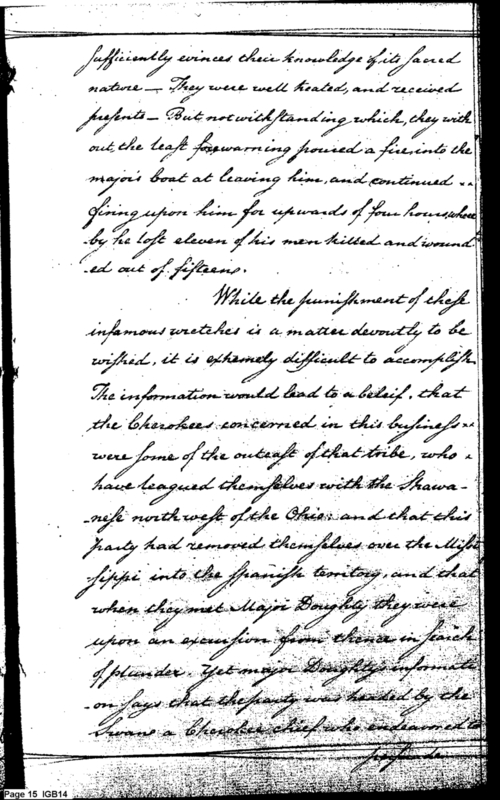 sufficiently evinces their knowledge of its sacred
nature — They were well treated, and received
presents — But notwithstanding which, they with
out, the least forewarning poured a fire into the
major's boat at leaving him, and continued
firing upon him for upwards of four hours, where
by he lost eleven of his men killed and wound
-ed out of fifteen.
While the punishment of these
infamous wretches is a matter devoutly to be
wished, it is extremely difficult to accomplish.
The information would lead to a beleif, that
the Cherokees concerned in this business
were some of the outcast of that tribe, who
have leagued themselves with the Shawa-
-nese northwest of the Ohio: and that this
party had removed themselves over the Missi
sippi into the Spanish territory, and that
when they met Major Doughty they were
upon an excursion from thence in search
of plunder. Yet major Doughty's informati
-on says that the party was headed by the
Swans a Cherokee chief who endeavored to
Page 15 IGB14